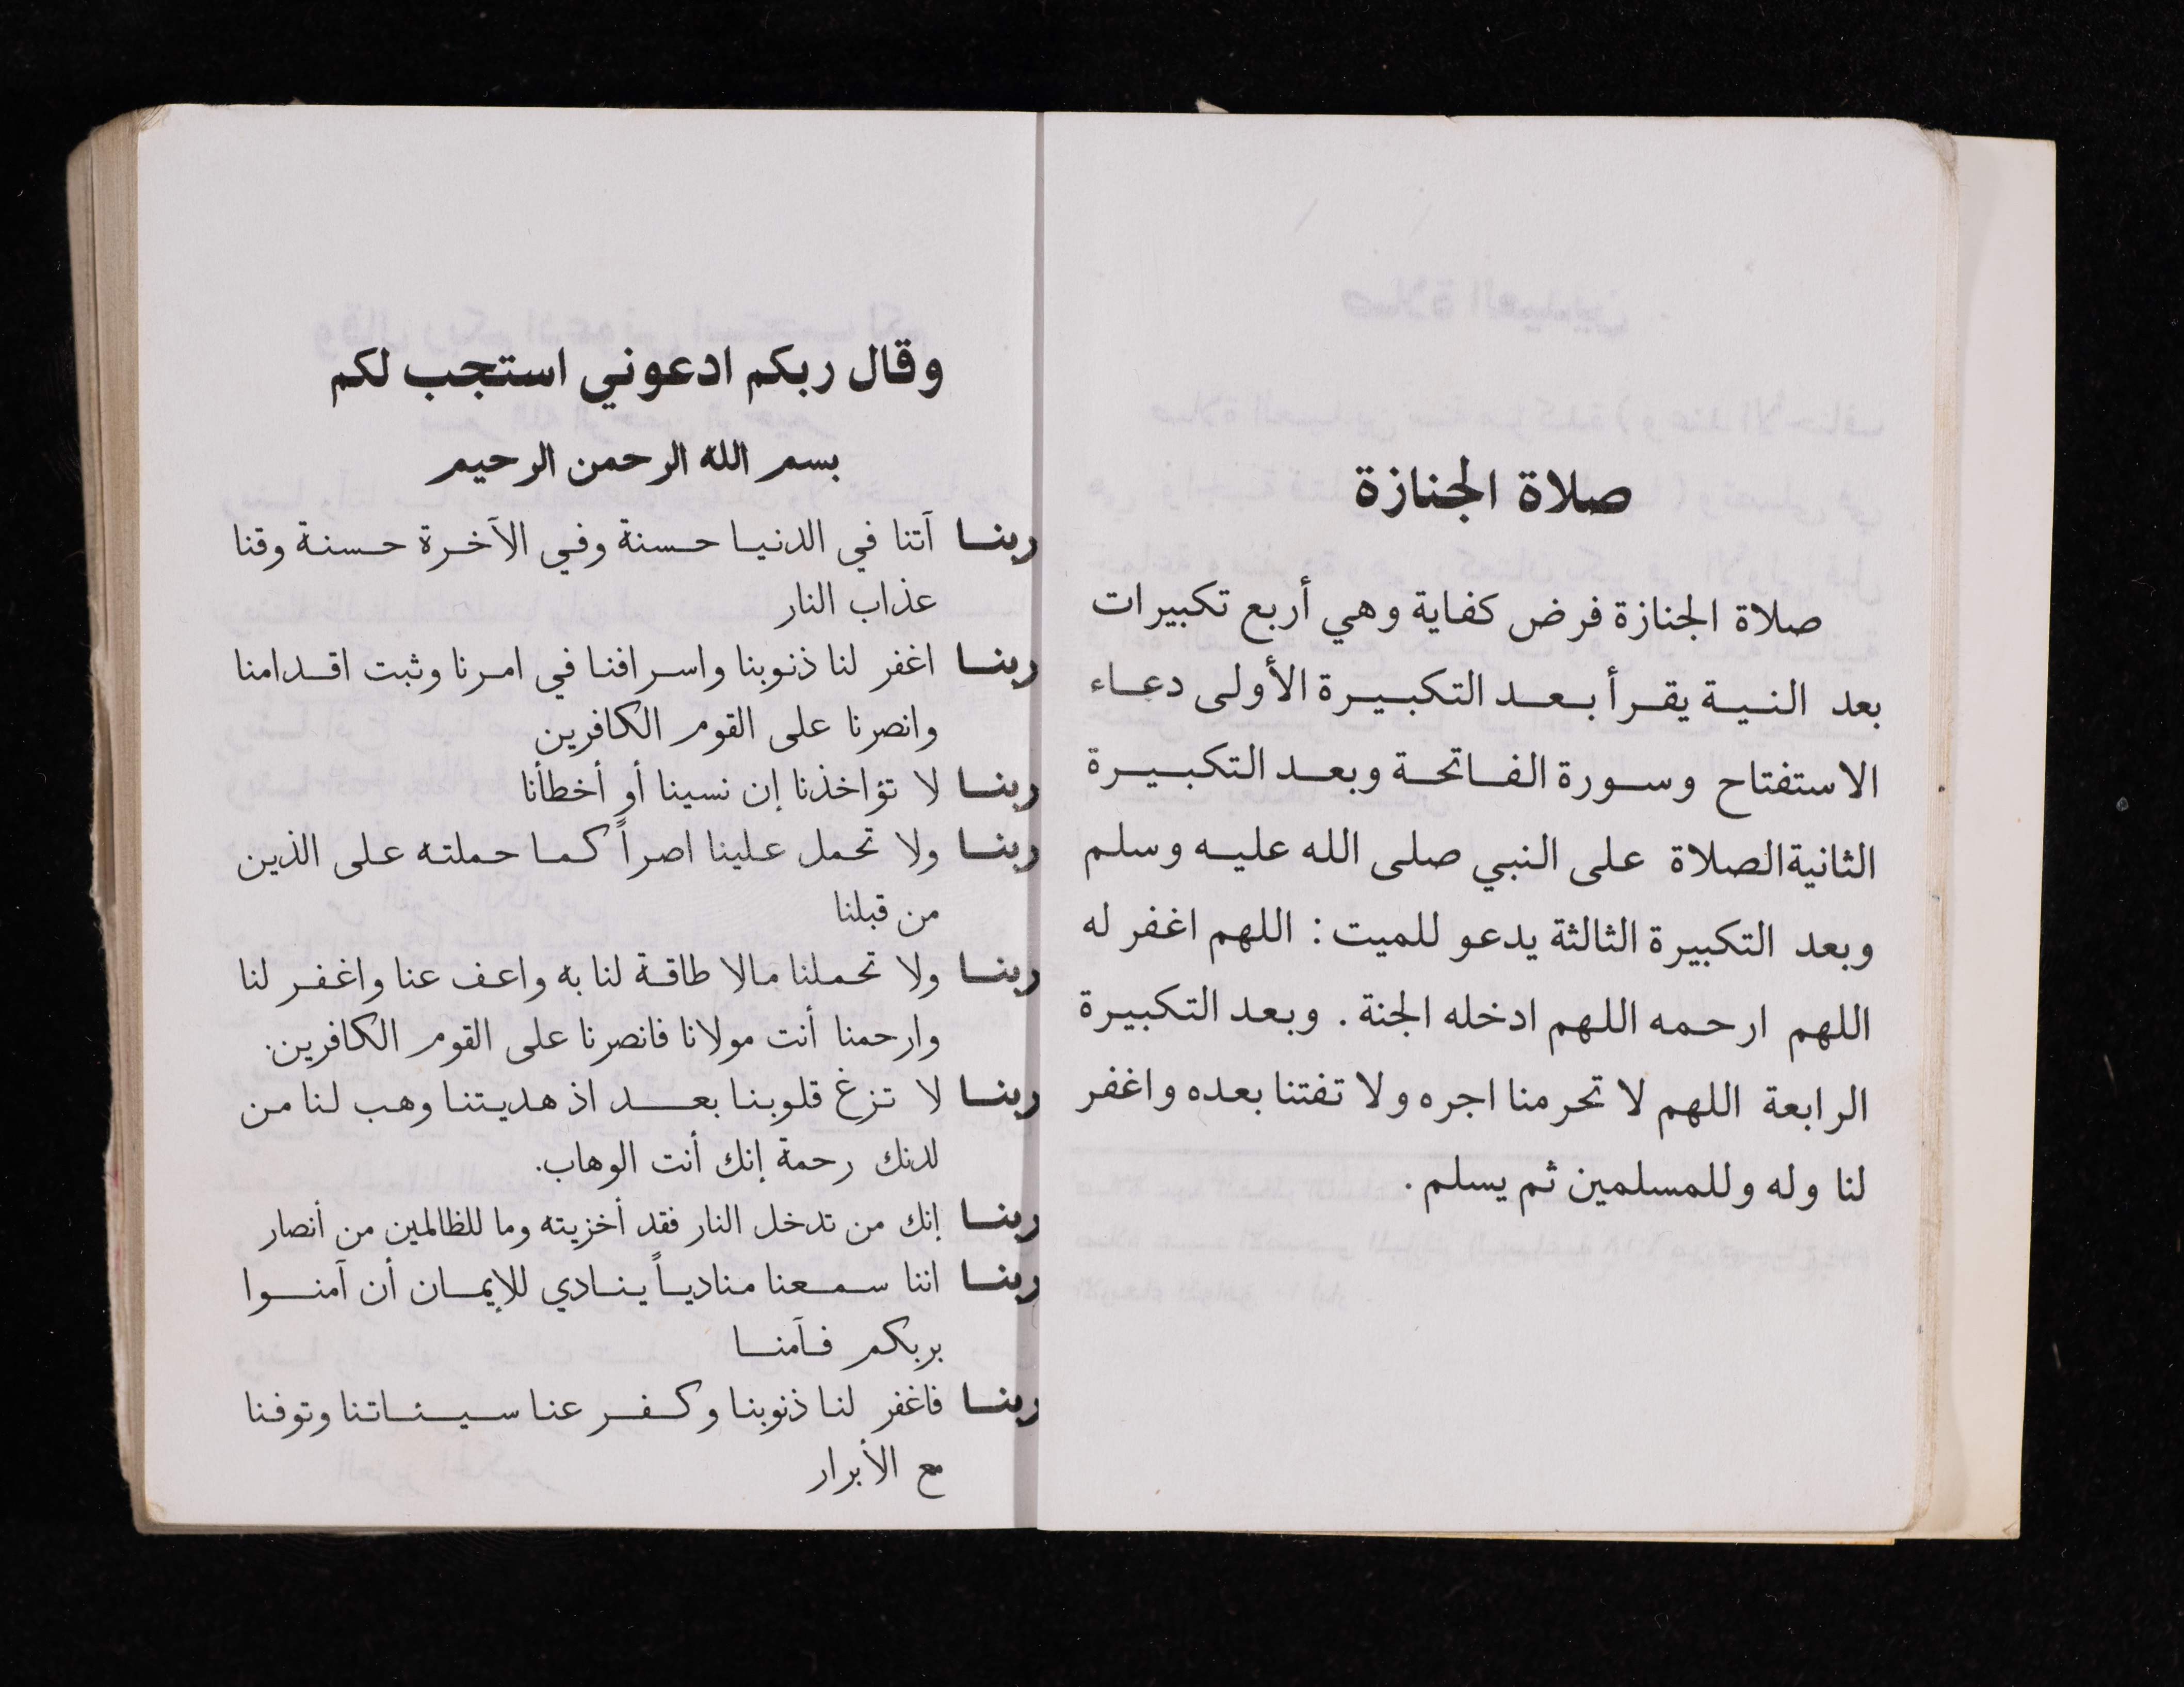 صلاة الجنازة
صلاة الجنازة فرض كفاية وهي أربع تكبيرات
بعد النية يقرأ بعد التكبيرة الأولى دعاء
الاستفتاح وسورة الفاتحة وبعد التكبيرة
الثانية الصلاة على النبي صلى الله عليه وسلم
وبعد التكبيرة الثالثة يدعو للميت : اللهم اغفر له
اللهم ارحمه اللهم ادخله الجنة . وبعد التكبيرة
الرابعة اللهم لا تحرمنا اجره ولا تفتنا بعده واغفر
لنا وله وللمسلمين ثم يسلم .
وقال ربكم ادعوني استجب لكم
بسم الله الرحمن الرحيم
ربنا آتنا في الدنيا حسنة وفي الآخرة حسنة وقنا
عذاب النار
ربنا اغفر لنا ذنوبنا واسرافنا في امرنا وثبت اقدامنا
وانصرنا على القوم الكافرين
ربنا لا تؤاخذنا إن نسينا أو أخطأنا
ربنا ولا تحمل علينا اصراً كما حملته على الذين
من قبلنا
ربنا ولا تحملنا مالا طاقة لنا به واعف عنا واغفر لنا
وارحمنا أنت مولانا فانصرنا على القوم الكافرين.
ربنا لا تزغ قلوبنا بعد اذ هديتنا وهب لنا من
لدنك رحمة إنك أنت الوهاب.
ربنا إنك من تدخل النار فقد أخزيته وما للظالمين من أنصار
ربنا اننا سمعنا منادياً ينادي للإيمان أن آمنوا
بربكم فآمنا
ربنا فاغفر لنا ذنوبنا وكفر عنا سيئاتنا وتوفنا
مع الأبرار